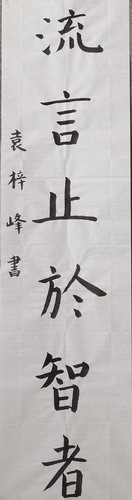 流言止於智者
袁梓峰書